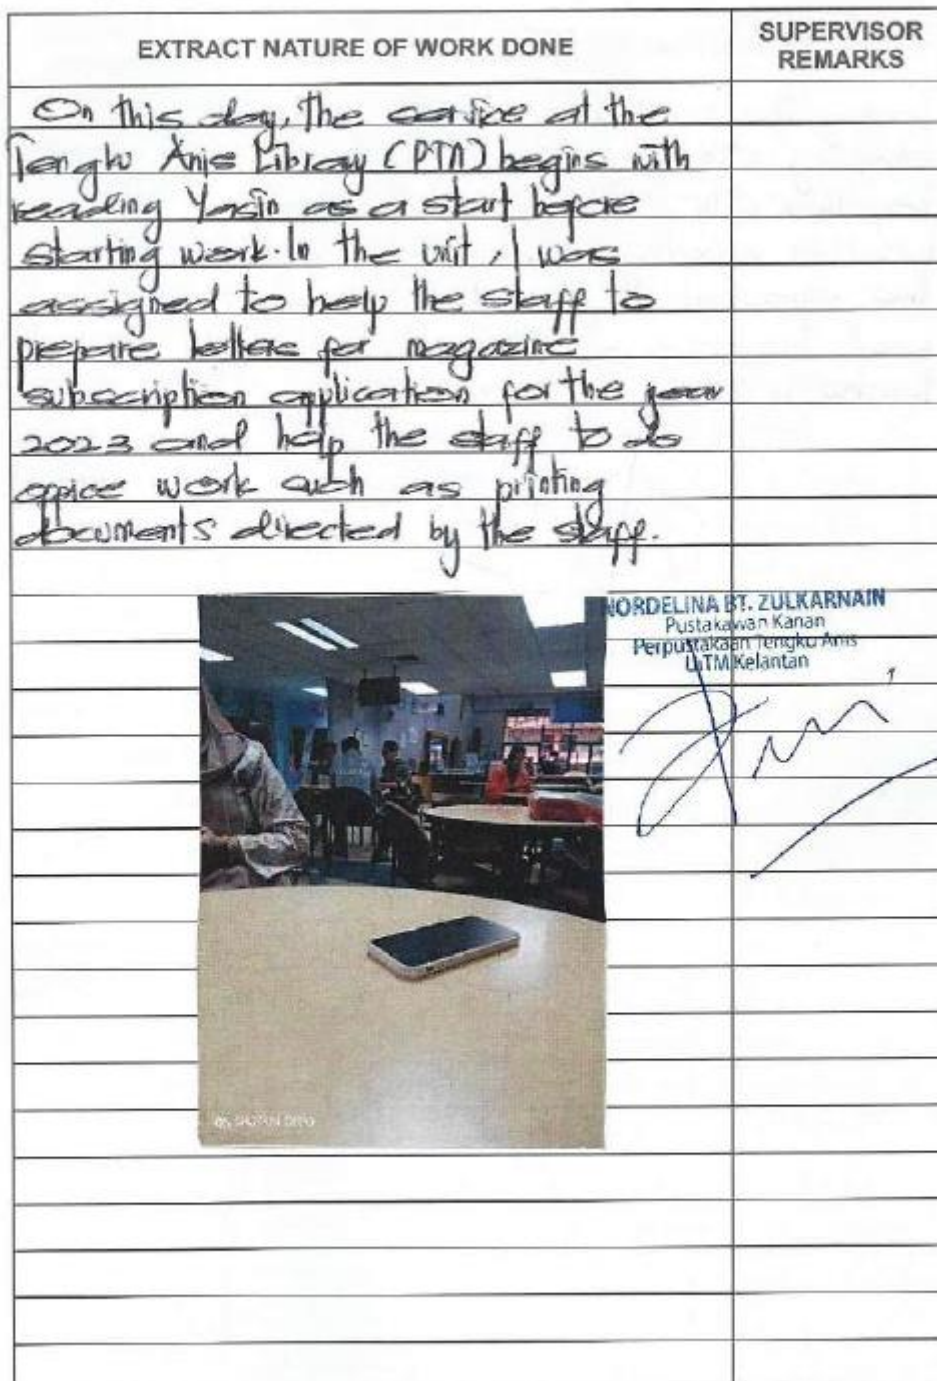 EXTRACT NATURE OF WORK DONE
SUPERVISOR
REMARKS
On this day, the service at the
Tengku Anis Library (PTA) begins with
reading Yasin as a start before
starting work. In the unit, I was
assigned to help the staff to
prepare letters for magazine
subscription application for the year
2023 and help the staff to do
office work such as printing
documents directed by the staff.
NORDELINA BT. ZULKARNAIN
Pustakawan Kanan
Perpustakaan Tengku Anis
UiTM Kelantan